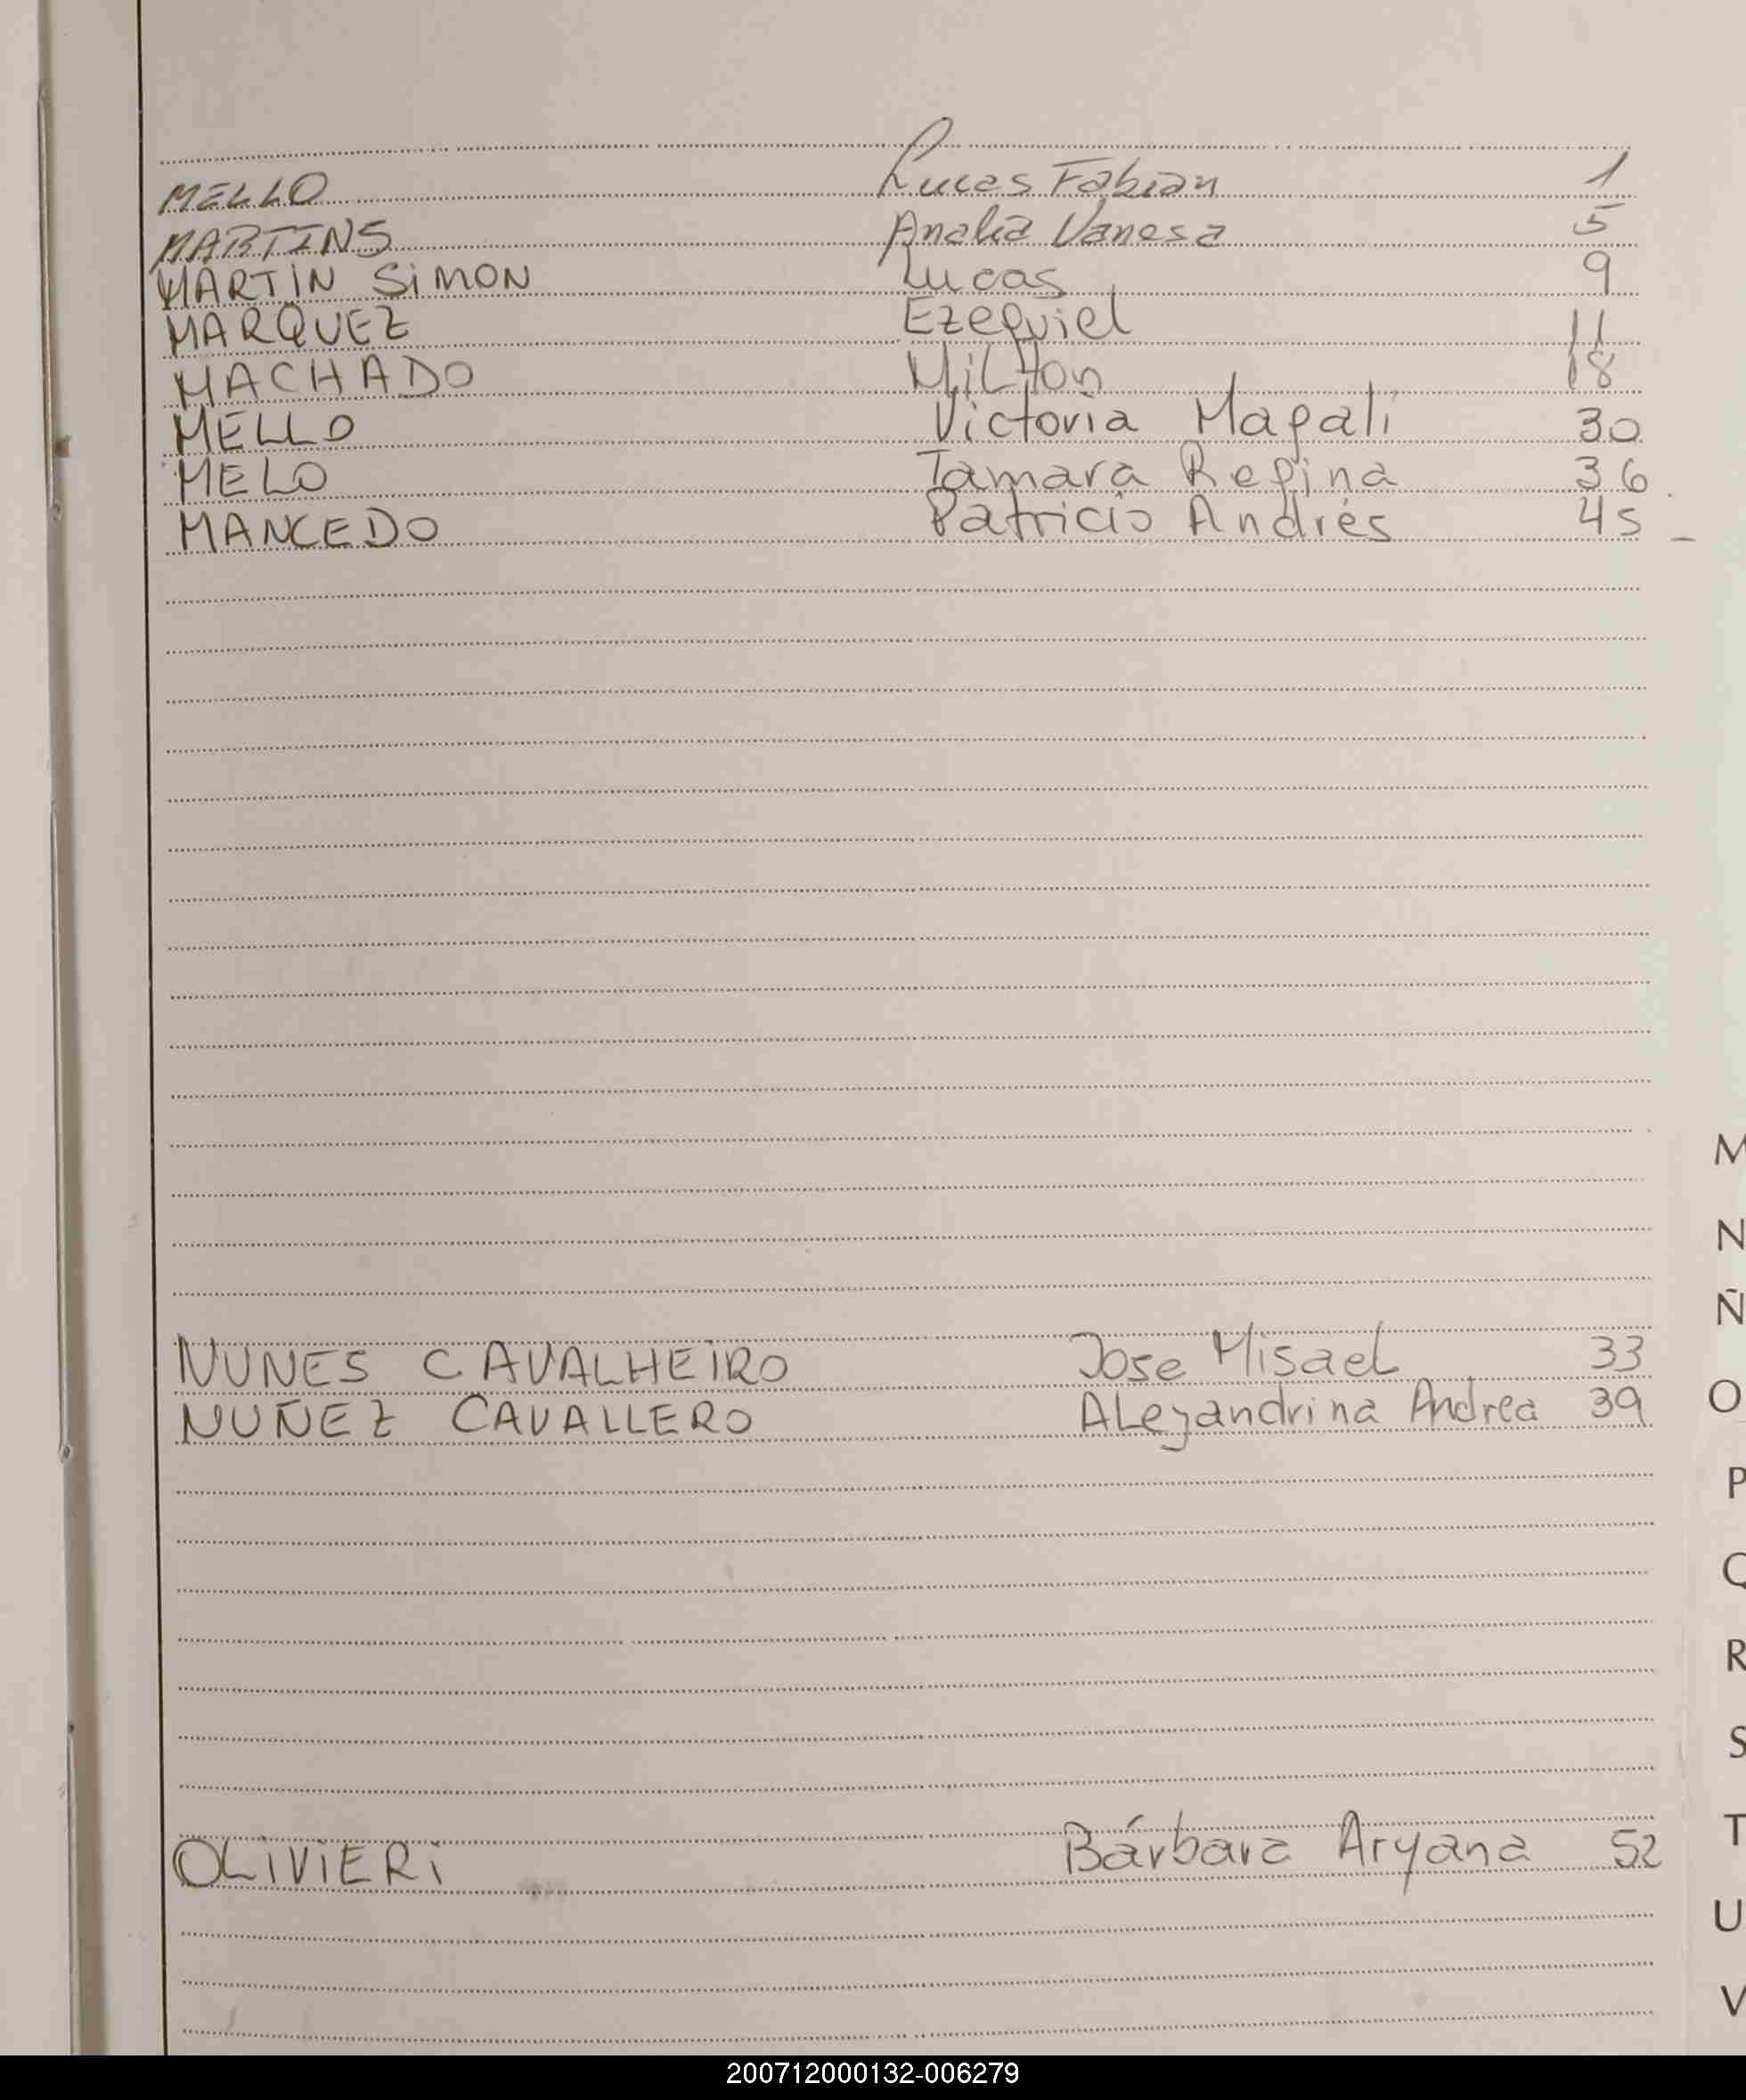 MELLO Lucas Fabian 1
MARTINS Analia Vanesa 5
MARTIN SiMON Lucas 9
MARQUEZ Ezequiel 11
MACHADO Milton 18
MELLO Victoria Magali 30
MELO Tamara Regina 36
MANCEDO Patricio Andrés 45
M
N
Ñ
NUNES CAVALHEIRO Jose Misael 33
NUÑEZ CAVALLERO Alejandrina Andrea 39
O
P
Q
R
S
T
OLIVIERI Bárbara Aryana 52
U
V
200712000132-006279